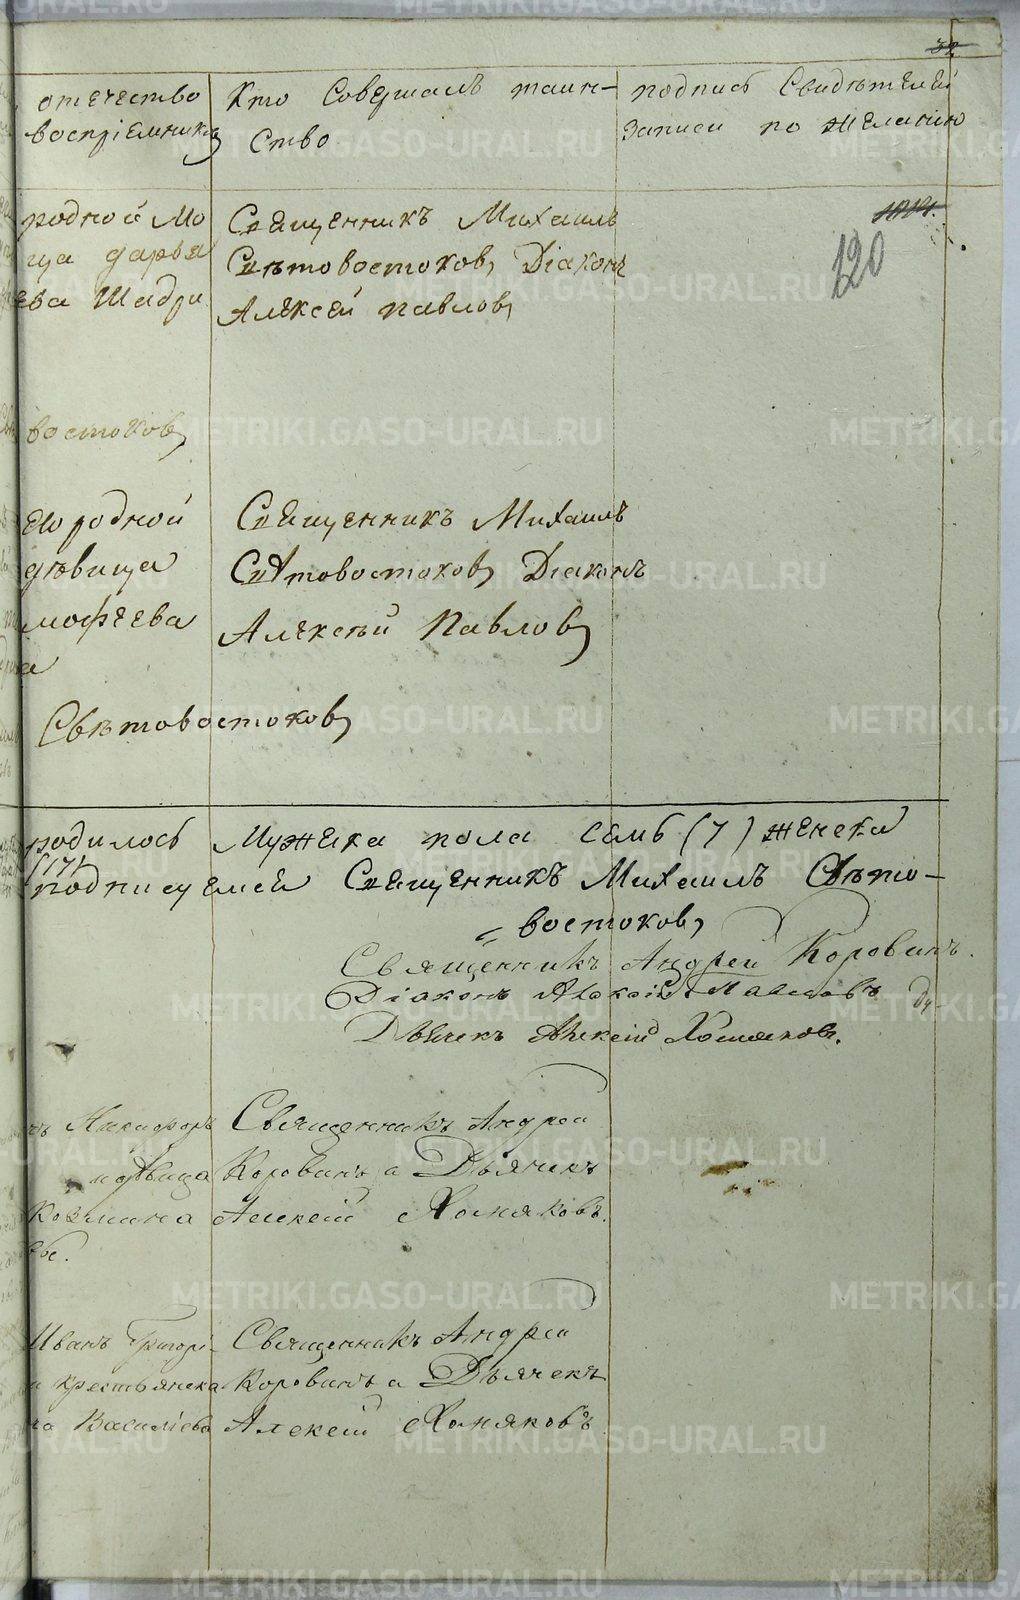 32
отечество
воспрiемниковъ
Кто Совершалъ таин-
ство
подпись Свидѣтелей
записи по желанию
родной Мо
ца дарья
ева Шадри
Священникъ Михаилъ
Свѣтовостоковъ Дiаконъ
Алексей павловъ
120
востоковъ
его родной
дѣвица
мофеева
а
Священникъ Михаилъ
Свѣтовостоковъ Дiаконъ
Алексѣй Павловъ
Свѣтовостоковъ
родилось Мужеска пола семь (7) женска
подписуемся Священникъ Михаилъ Свѣто-
востоковъ
Священникъ Андрей Коровинъ.
Дiаконъ Алексiй Павловъ
Дьячекъ Алексiй Хомяковъ.
Никифоръ
Козмина
Священникъ Андрей
Коровинъ а Дьячекъ
Алексiй Хомяковъ.
Иванъ Григорi-
и крестьянска
на Василiева
Священникъ Андрей
Коровинъ а Дьячекъ
Алексiй Хомяковъ
METRIKI.GASO-URAL.RU